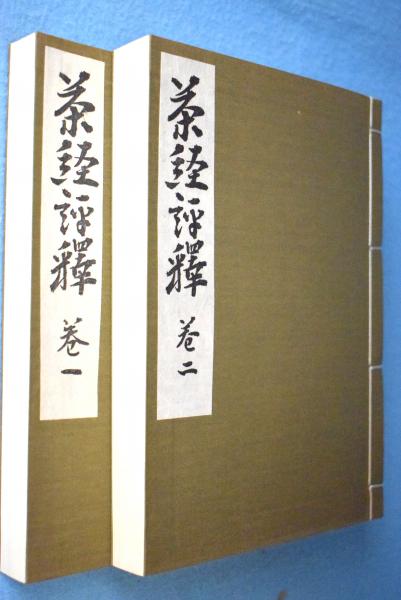 茶経評釋 巻一
茶経評釋 巻二